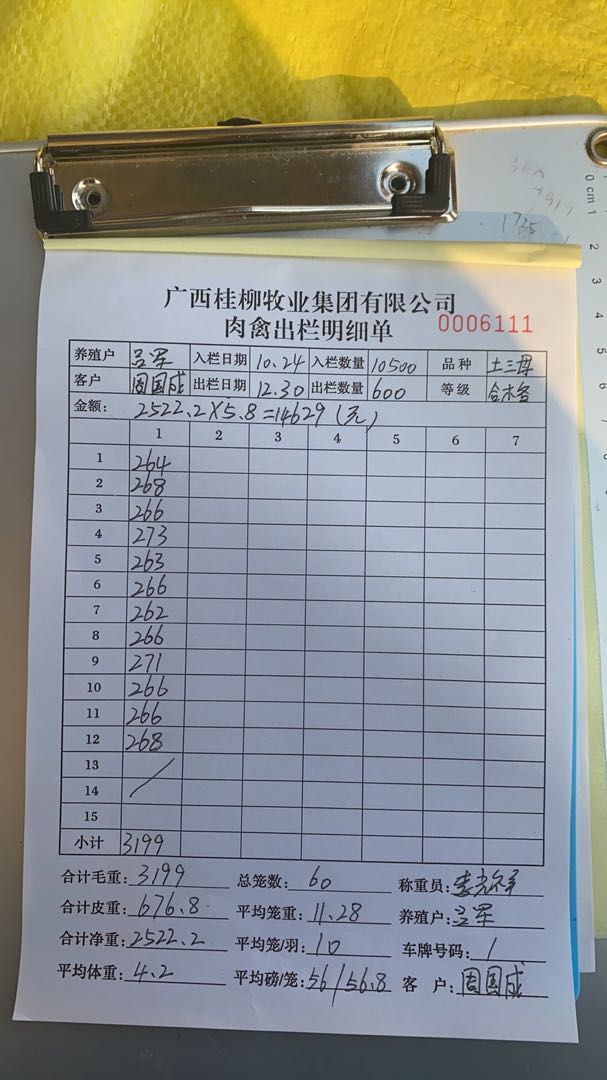 广西桂柳牧业集团有限公司
肉禽出栏明细单 0006111
养殖户 吕军 入栏日期 10.24 入栏数量 10500 品种 土三母
客户 周国成 出栏日期 12.30 出栏数量 600 等级 合格
金额: 2522.2×5.8=14629(元)
1 2 3 4 5 6 7
1 264
2 268
3 266
4 273
5 263
6 266
7 262
8 266
9 271
10 266
11 266
12 268
13
14
15
小计 3199
合计毛重: 3199 总笼数: 60 称重员:
合计皮重: 676.8 平均笼重: 11.28 养殖户: 吕军
合计净重: 2522.2 平均笼/羽: 10 车牌号码: /
平均体重: 4.2 平均磅/笼: 56/56.8 客 户: 周国成
0 cm 1 2 3 4 5 6 7
1735